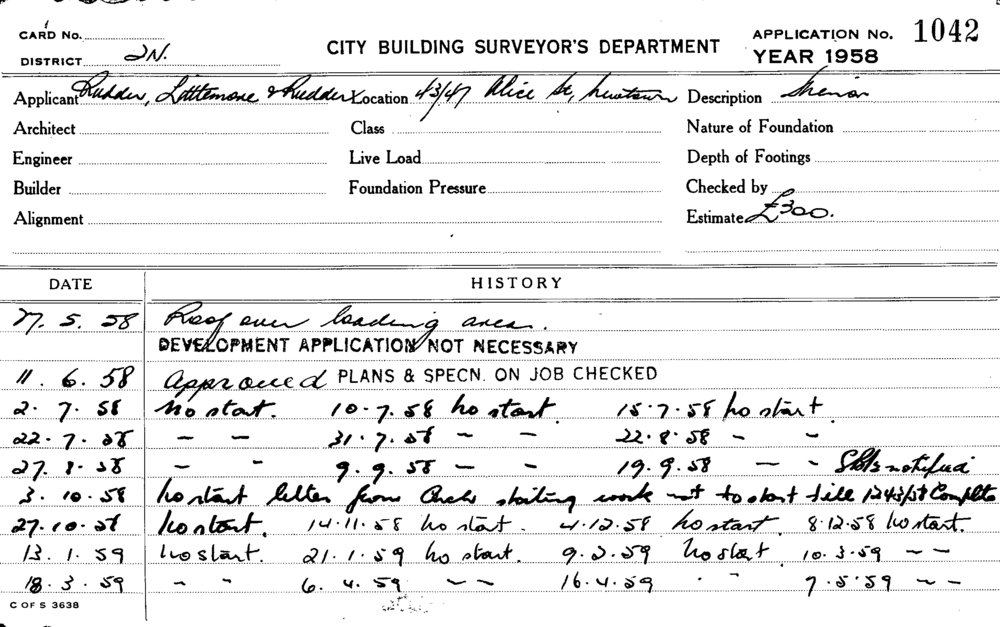 CARD No. 1
CITY BUILDING SURVEYOR'S DEPARTMENT
APPLICATION No. 1042
DISTRICT 2N.
YEAR 1958
Applicant Rudder, Littlemore & Rudder Location 43/47 Alice St, Newtown Description
Architect Class Nature of Foundation
Engineer Live Load Depth of Footings
Builder Foundation Pressure Checked by
Alignment Estimate £300.
DATE HISTORY
27. 5. 58 Roof over loading area.
DEVELOPMENT APPLICATION NOT NECESSARY
11. 6. 58 Approved PLANS & SPECN. ON JOB CHECKED
2. 7. 58 No start. 10-7.58 No start 15.7.58 No start
22.7.58 - - 31.7.58 - - 22.8.58 - -
27.8.58 - - 9.9.58 - - 19.9.58 - - notified
3.10.58 No start letter from stating work not to start till 1243/58 Complete
27.10.58 No start. 14.11.58 No start. 4.12.58 No start 8.12.58 No start.
13.1.59 No start. 21.1.59 No start. 9.2.59 No start 10.3.59 - -
18.3.59 - - 6.4.59 - - 16.4.59 - - 7.5.59 - -
C OF S 3638